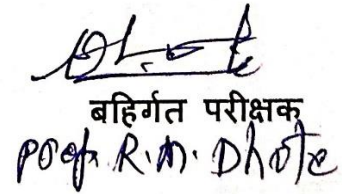 बहिर्गत परीक्षक
Prof. R. M. Dhote